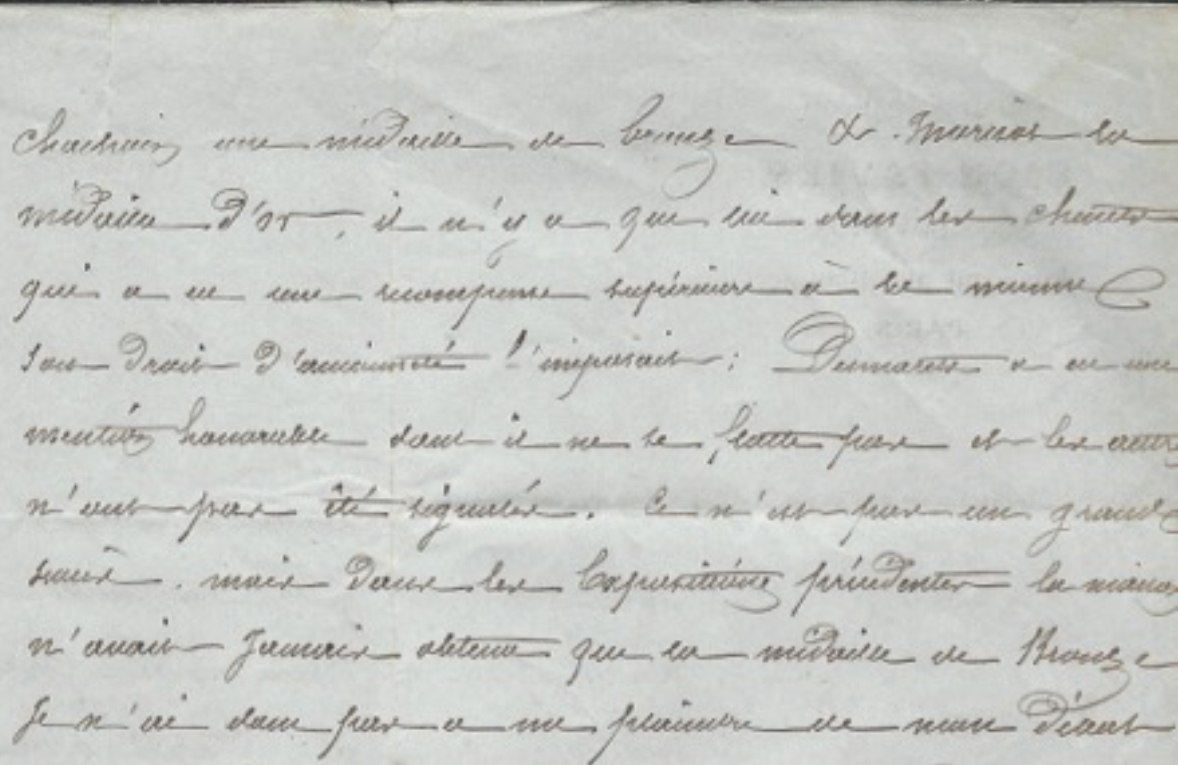 une médaille de bronze & la
médaille D'or, il n'y a que lui dans les
qui a eu une recompense supérieure à la mienne
son Droit D'ancienneté l'imposait ; Desmarest a eu une
mention honorable dont il ne se flatte pas et les autres
n'ont pas été signalés. Ce n'est pas un grand
succès. mais Dans les Expositions précédentes la maison
n'avait Jamais obtenu que la médaille de Bronze
Je n'ai donc pas a me plaindre de mon Début